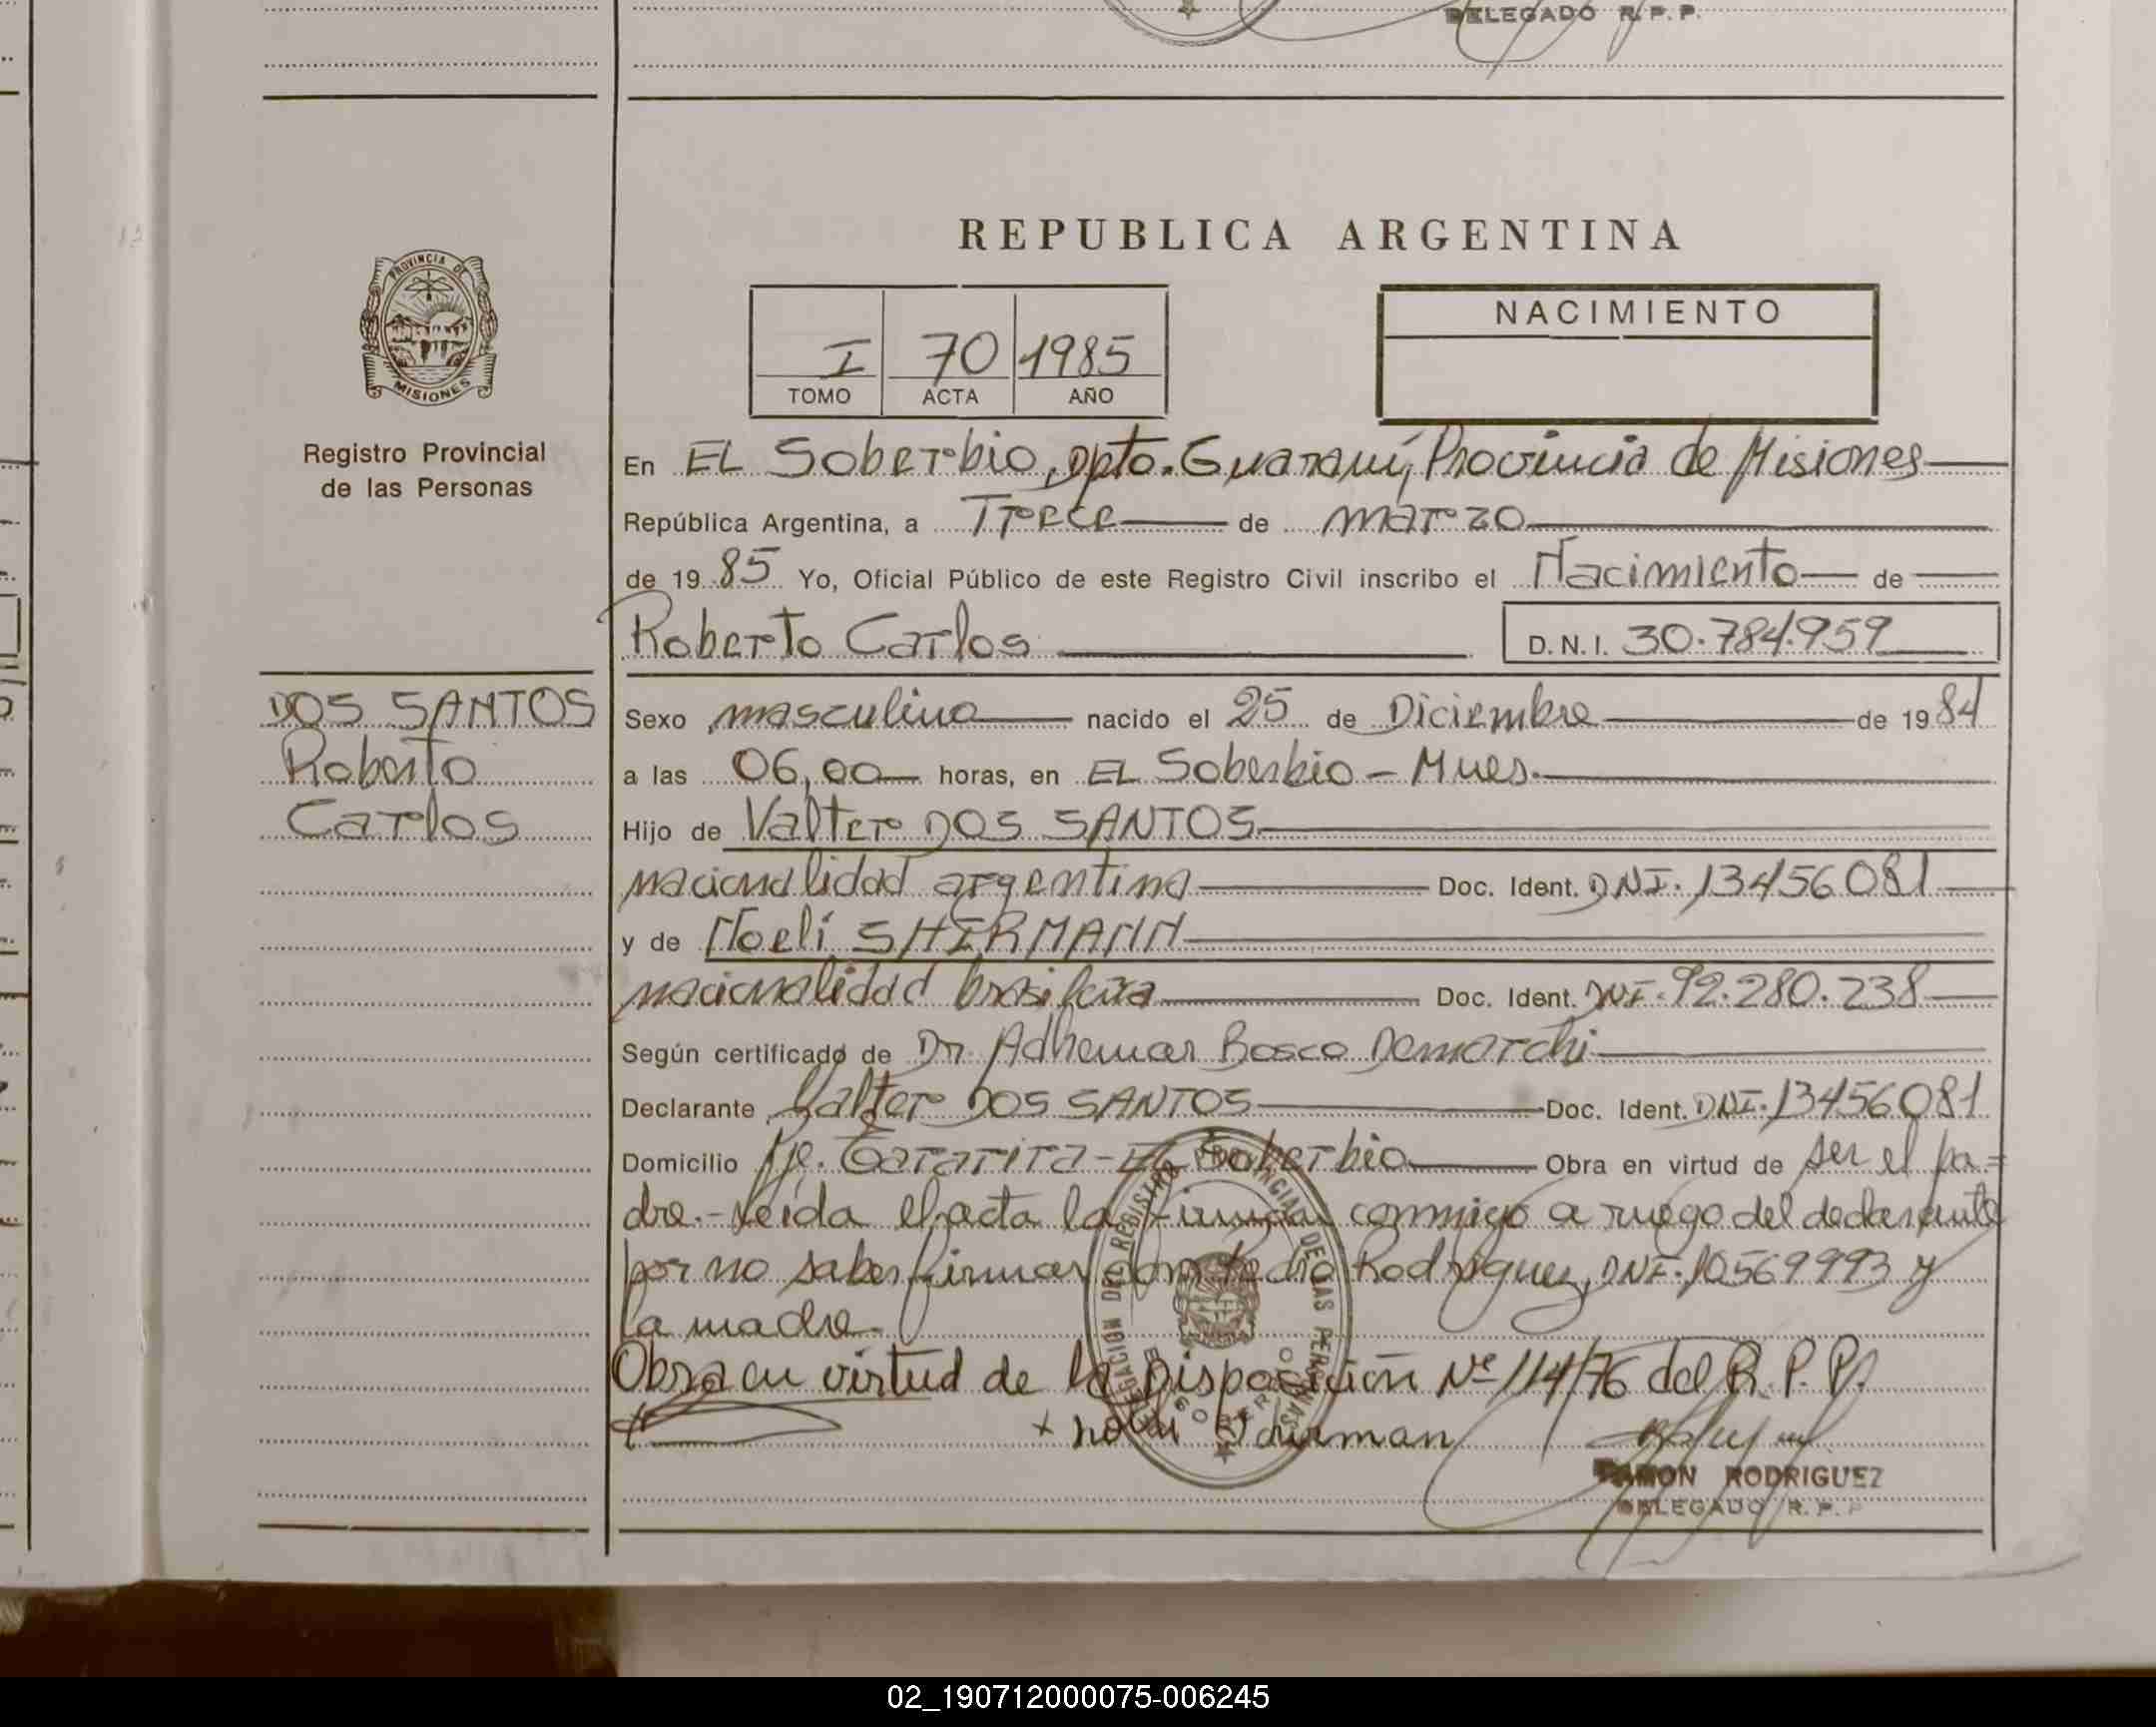 DELEGADO R. P. P.
REPUBLICA ARGENTINA
PROVINCIA DE
MISIONES
Registro Provincial
de las Personas
I 70 1985
TOMO ACTA AÑO
NACIMIENTO
En EL Soberbio, Dpto. Guaraní, Provincia de Misiones
República Argentina, a Trece de marzo
de 1985 Yo, Oficial Público de este Registro Civil inscribo el Nacimiento de
Roberto Carlos D. N. I. 30.784.959
DOS SANTOS
Roberto
Carlos
Sexo masculino nacido el 25 de Diciembre de 1984
a las 06,00 horas, en EL Soberbio - Mnes.
Hijo de Valter DOS SANTOS
nacionalidad argentina Doc. Ident. DNI. 13456081
y de Noelí SHIRMANN
nacionalidad brasilera Doc. Ident. DNI. 92.280.238
Según certificado de Dr. Adhemar Bosco Demarchi
Declarante Valter DOS SANTOS Doc. Ident. DNI. 13456081
Domicilio Pje. EL Soberbio Obra en virtud de ser el pa=
dre.- Leída el acta la firman conmigo a ruego del declarante
por no saber firmar don Pedro Rodríguez, DNI. 10569993 y
la madre.
Obra en virtud de la Disposición Nº 114/76 del R. P. P.
+
DELEGACION DE REGISTRO PROVINCIAL DE LAS PERSONAS
RAMON RODRIGUEZ
DELEGADO R. P. P.
02_190712000075-006245